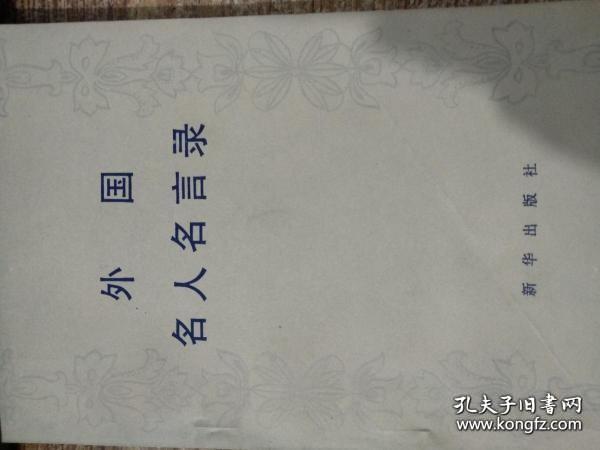 外国
名人名言录
新华出版社
孔夫子旧書网
www.kongfz.com